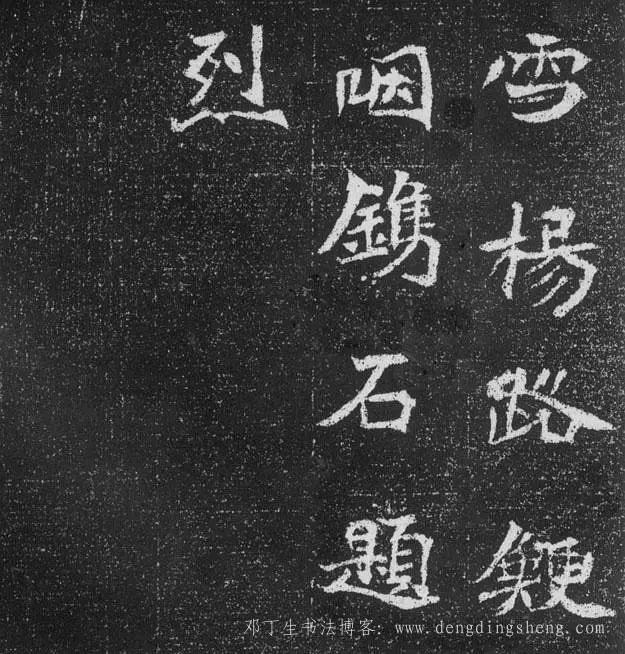 雪楊路鯁
咽鐫石題
烈
邓丁生书法博客：www.dengdingsheng.com